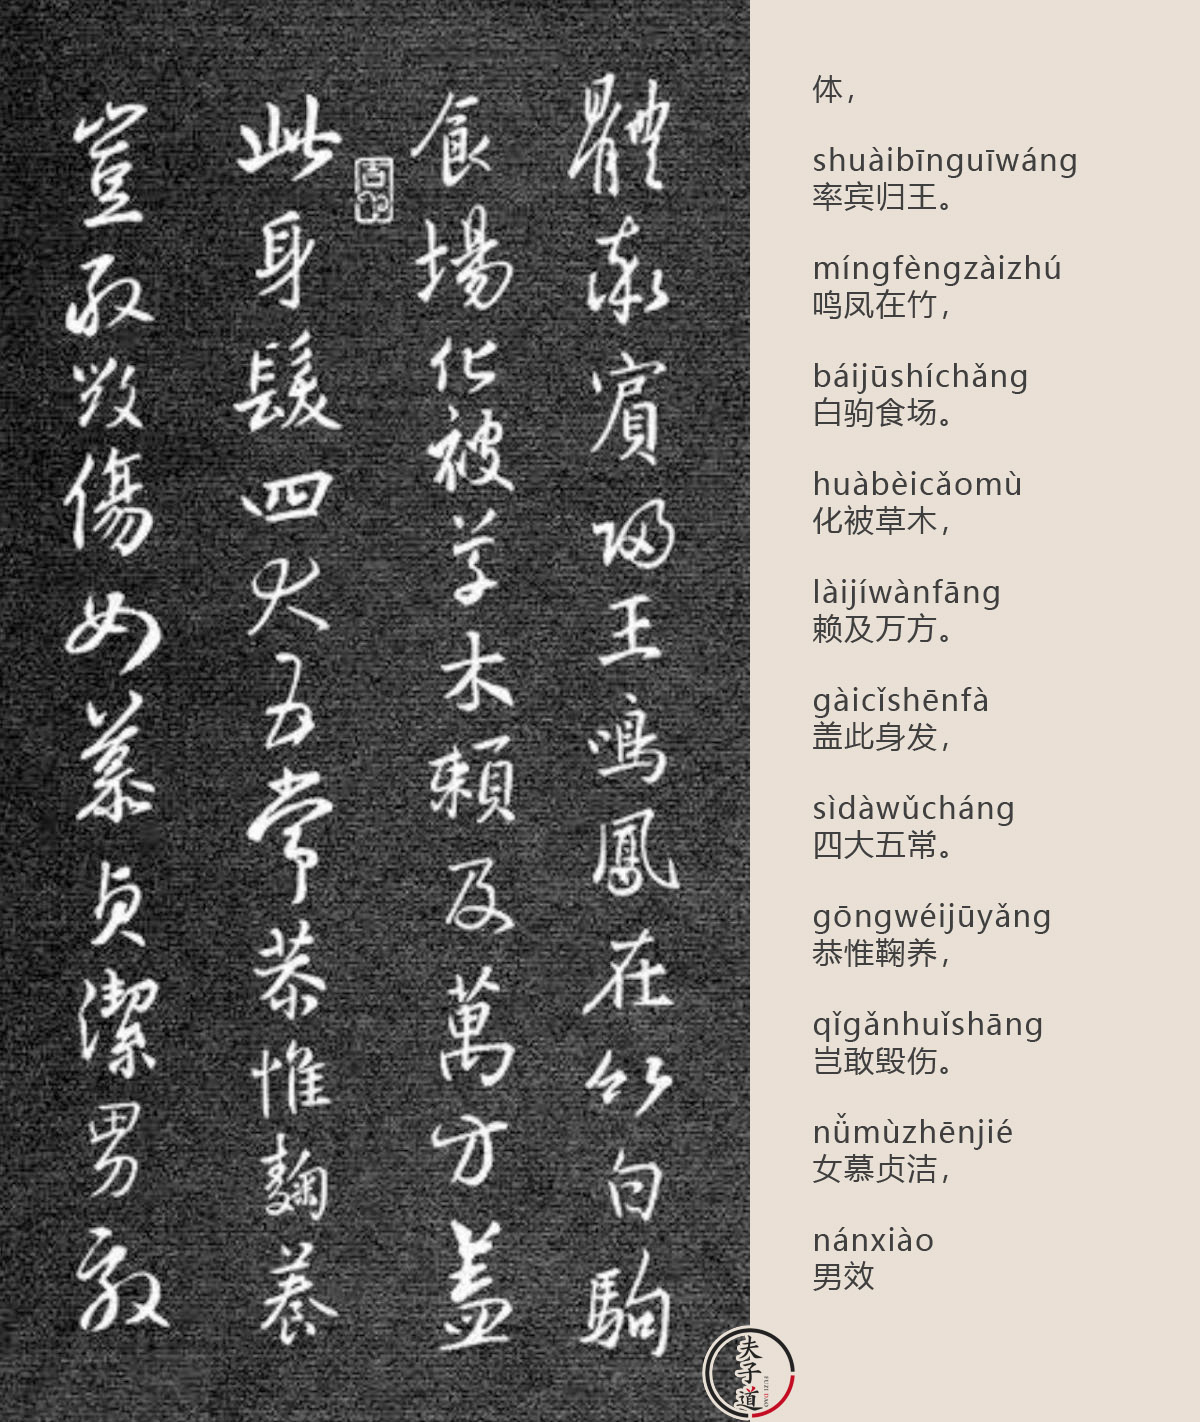 體率賓歸王鳴鳳在竹白駒
食場化被草木賴及萬方蓋
此身髮四大五常恭惟鞠養
豈敢毀傷女慕貞潔男效
体，
shuàibīnguīwáng
率宾归王。
míngfèngzàizhú
鸣凤在竹，
báijūshíchǎng
白驹食场。
huàbèicǎomù
化被草木，
làijíwànfāng
赖及万方。
gàicǐshēnfà
盖此身发，
sìdàwǔcháng
四大五常。
gōngwéijūyǎng
恭惟鞠养，
qǐgǎnhuǐshāng
岂敢毁伤。
nǚmùzhēnjié
女慕贞洁，
nánxiào
男效
夫子道
FUZI DAO